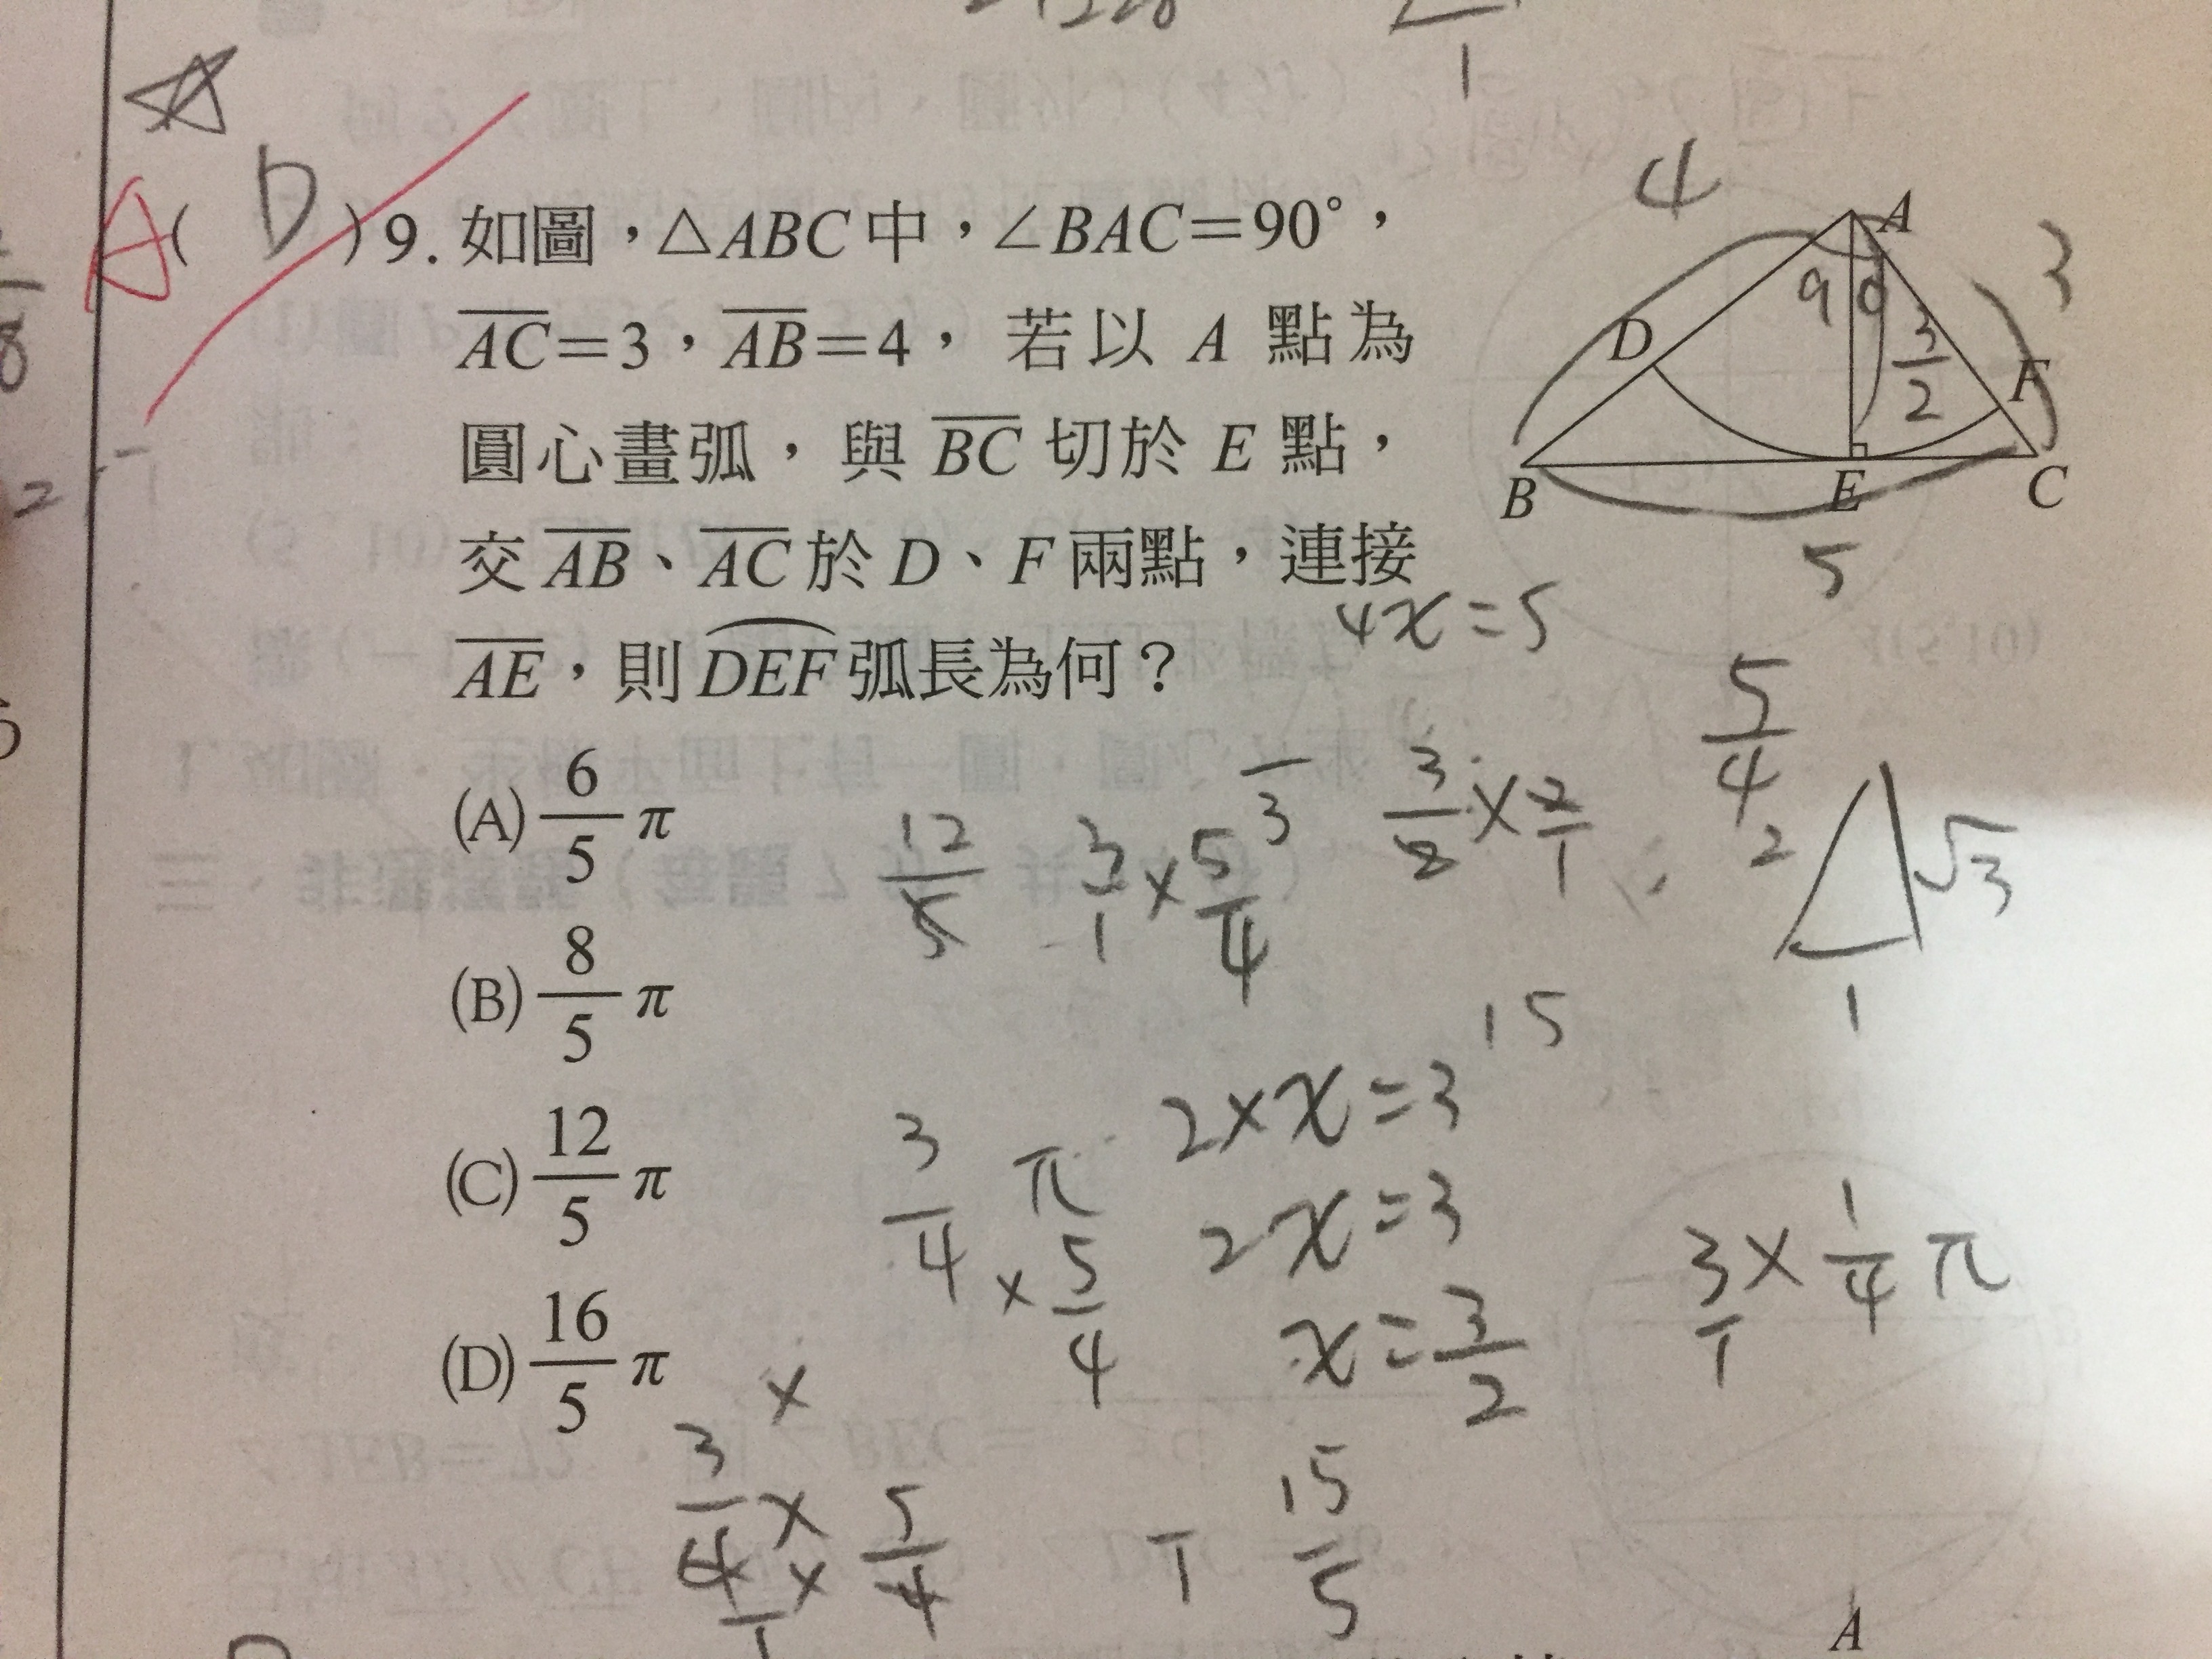 A ( D ) 9. 如圖，△ABC中，∠BAC=90°，
AC=3，AB=4，若以 A 點為
圓心畫弧，與 BC 切於 E 點，
交 AB、AC 於 D、F 兩點，連接
AE，則 DEF 弧長為何？
(A) 6/5 π
(B) 8/5 π
(C) 12/5 π
(D) 16/5 π
4
A
3
90
D
3/2
F
B
E
C
5
4x=5
5/4
12/5
3/1×5/4
3
3/2×2/1
2
√3
1
15
2×x=3
3/4 π
2x=3
×5/4
x=3/2
3/1×1/4 π
×
3/4×
×5/4
1
15/5
A
1